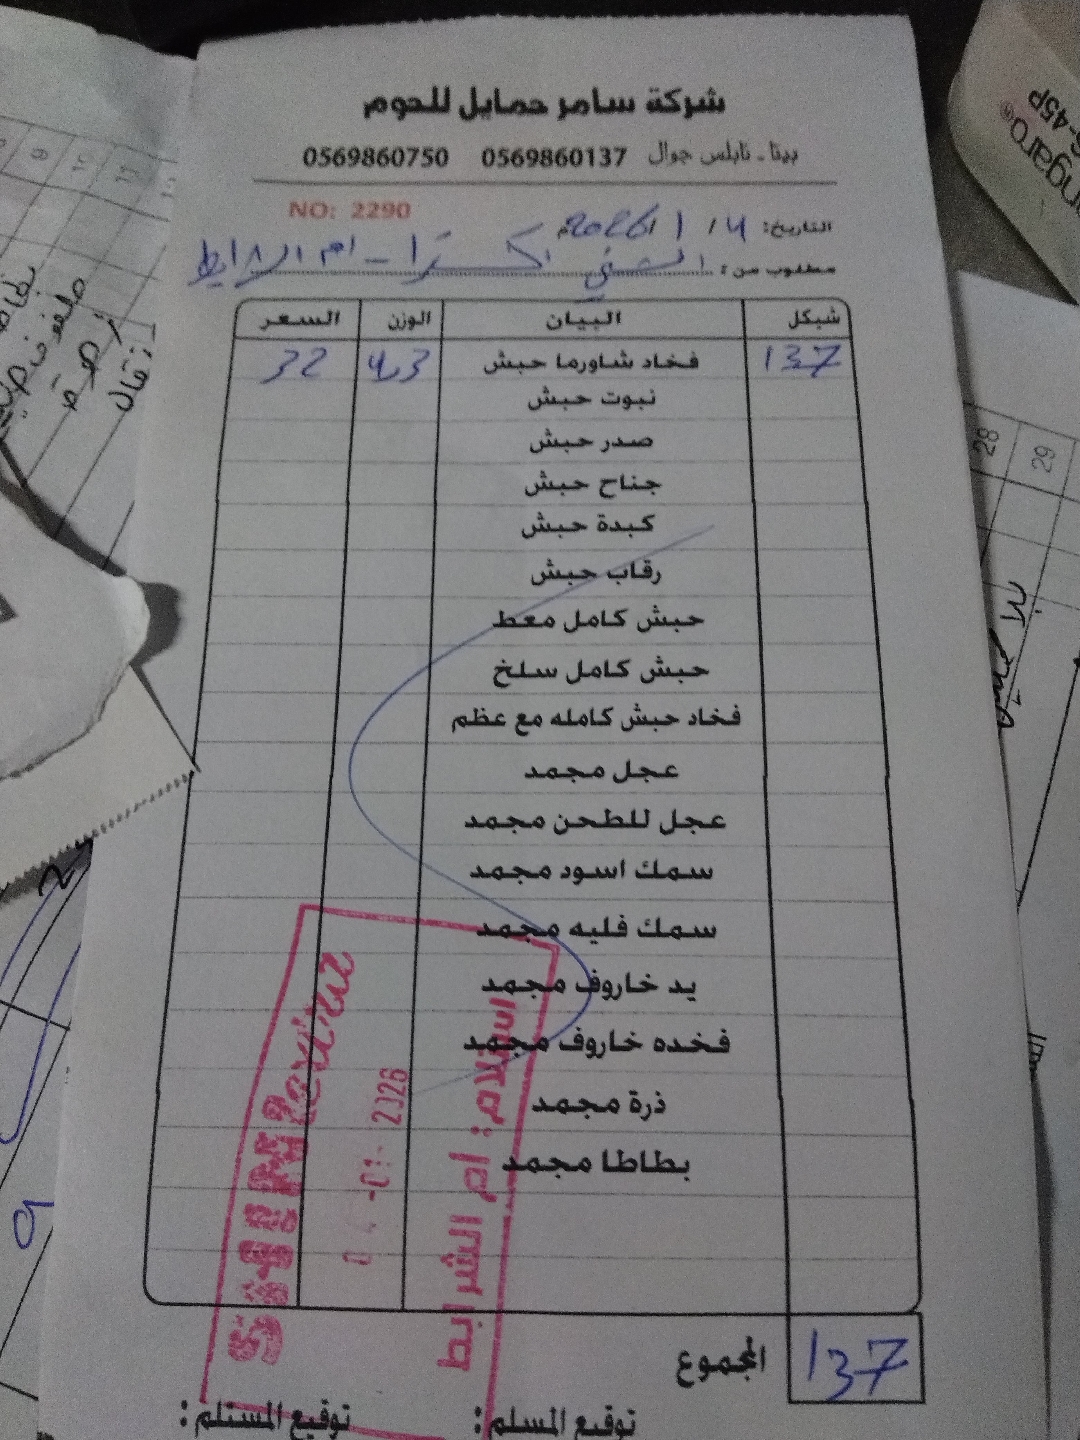 شركة سامر حمايل للحوم
بيتا - نابلس جوال 0569860137 0569860750
NO: 2290
التاريخ: 4 / 1 / 2026م
مطلوب من: الشني اكسترا - ام الشرايط
شيكل البيان الوزن السعر
137 فخاد شاورما حبش 4.3 32
نبوت حبش
صدر حبش
جناح حبش
كبدة حبش
رقاب حبش
حبش كامل معط
حبش كامل سلخ
فخاد حبش كامله مع عظم
عجل مجمد
عجل للطحن مجمد
سمك اسود مجمد
سمك فليه مجمد
يد خاروف مجمد
فخده خاروف مجمد
ذرة مجمد
بطاطا مجمد
المجموع 137
توقيع المسلم : توقيع المستلم :
0 4 -01- 2026
استلام: ام الشرايط
ngaro®
-45P
9
10
11
28
29
برتقال